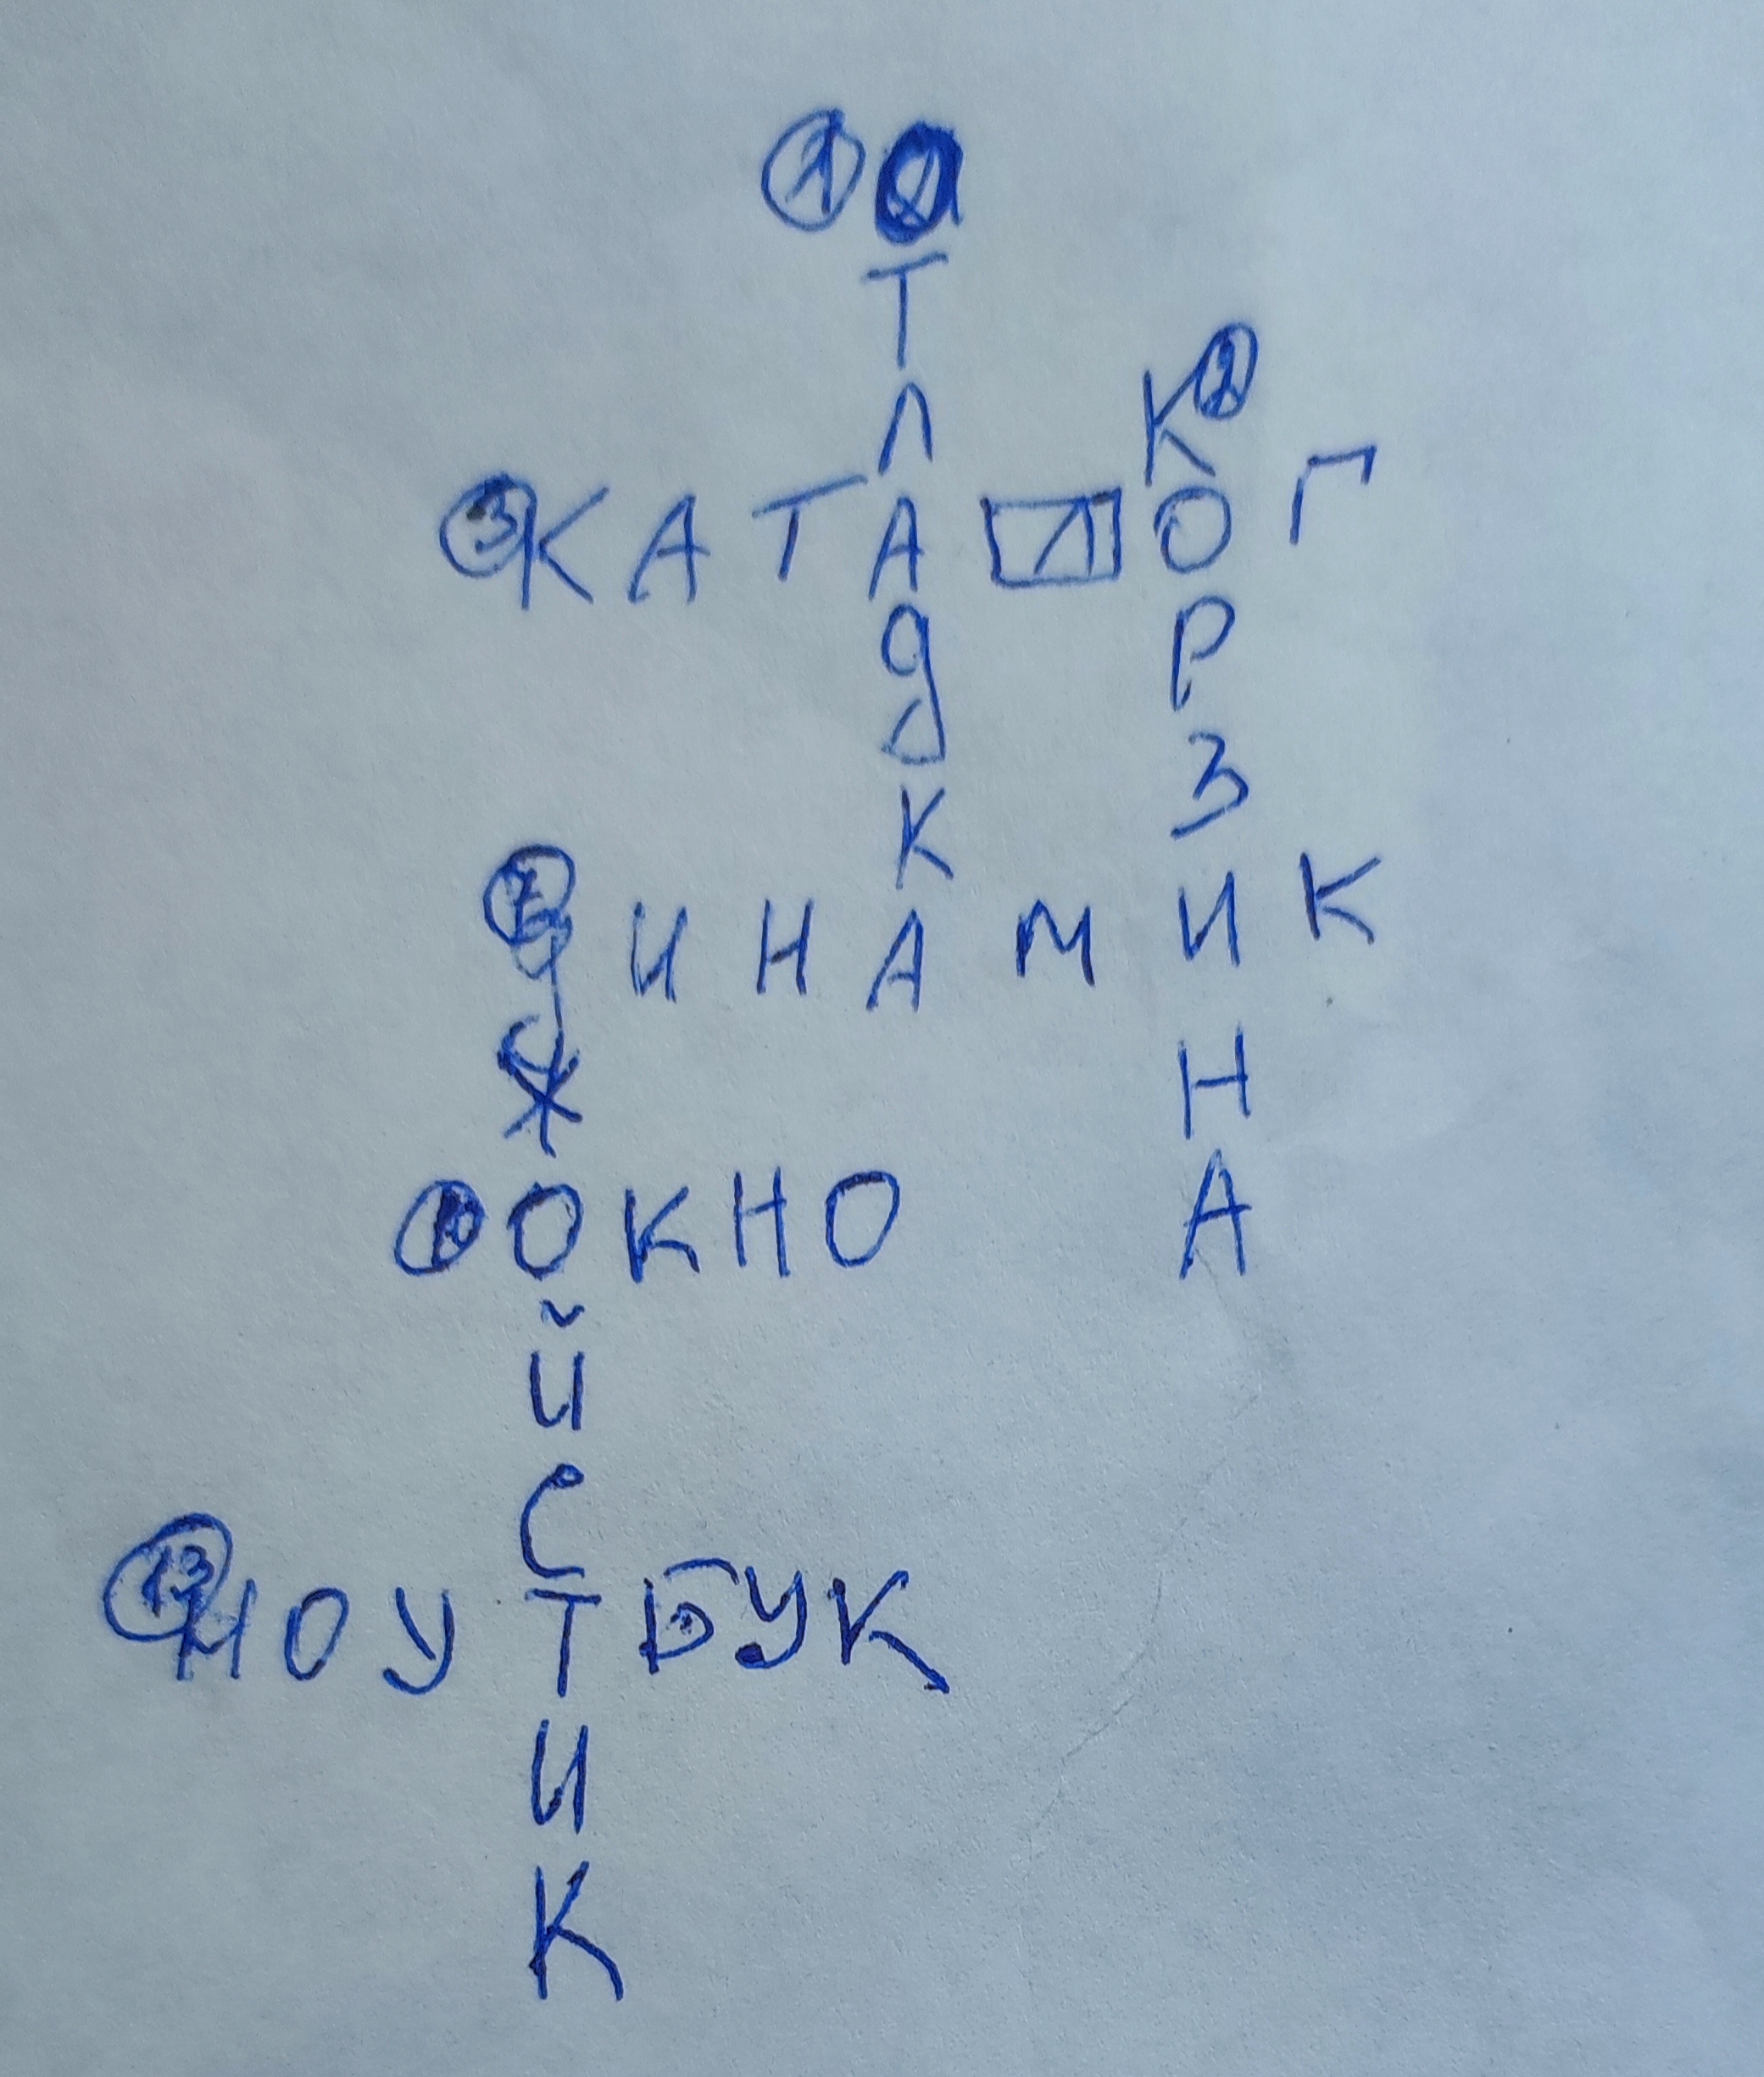 1 ОТЛАДКА
2 КОРЗИНА
3 КАТАЛОГ
ДИНАМИК
ДЖОЙСТИК
10 ОКНО
13 НОУТБУК